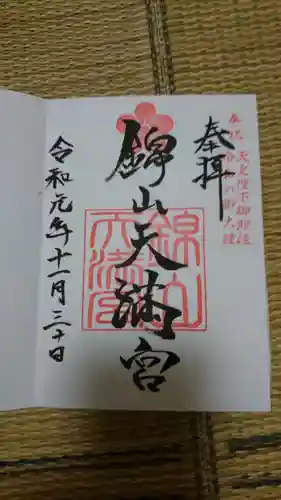 奉拝
錦山天満宮
令和元年十一月三十日